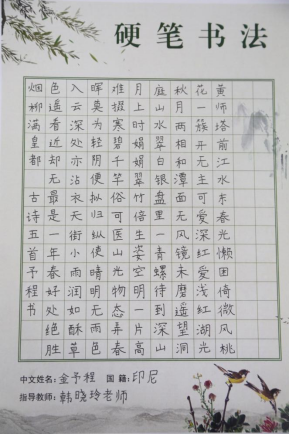 硬笔书法
黄师塔前江水东春光懒困倚微风桃
花一簇开无主可爱深红爱浅红湖光
秋月两相和潭面无风镜未磨遥望洞
庭山水翠白银盘里一青螺待到深山
月上时娟娟翠竹倍生姿空明一片高
难寒碧千竿俗可医山光物态弄春
晖莫为轻阴便拟归纵使晴明无雨色
入云深处亦沾衣天街小雨润如酥草
色遥看近却无最是一年春好处绝胜
烟柳满皇都 古诗五首 予程书
中文姓名：金予程 国籍：印尼
指导教师：韩晓玲老师